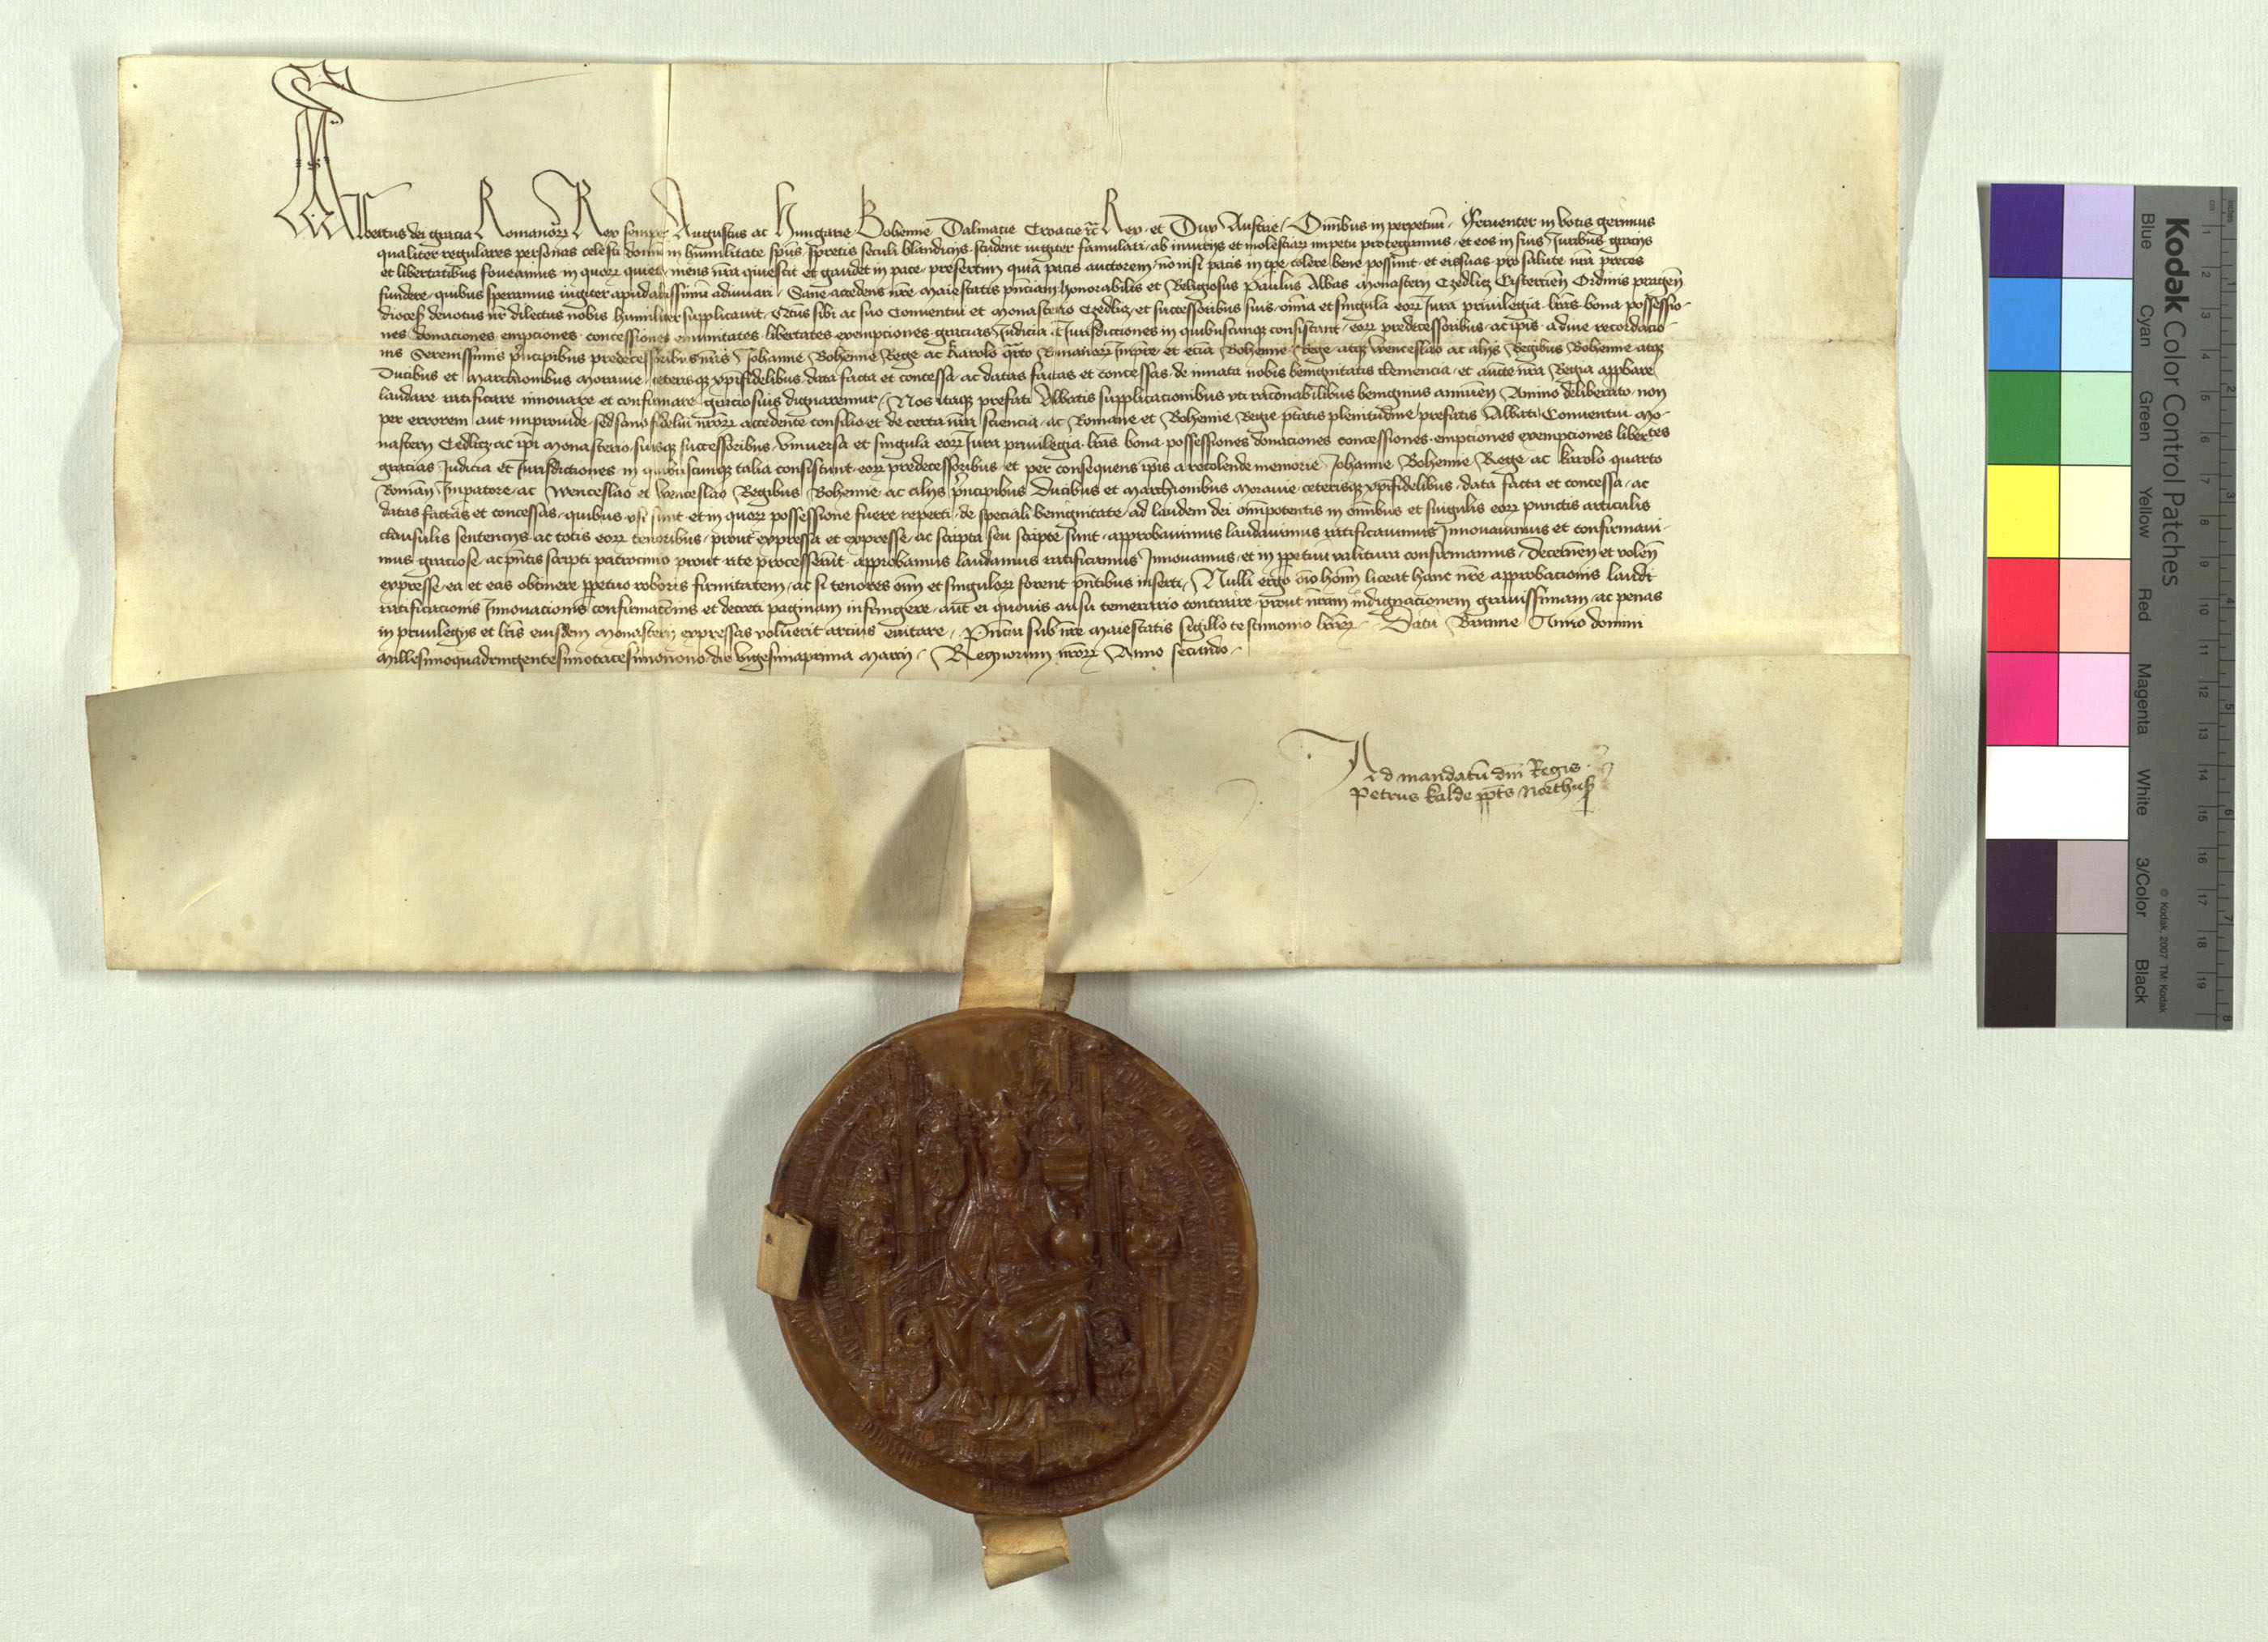 Albertus dei gracia Romanorꝝ Rex semper Augustus ac Hungarie Bohemie Dalmacie Croacie ꝛc̄ Rex et Dux Austrie Om̄ibus in perpetuū Frequenter in votis gerimus
qualiter regulares personas celesti domino in humilitate sp̄us spretis seculi blandicijs student iugiter famulari ab iniurijs et molestiarꝝ impetu protegamus et eos in suis Juribus gracijs
et libertatibus foveamus in quorꝝ quiete mens nr̄a quiescit et gaudet in pace presertim quia pacis auctorem nō nisi pacis in tp̄e colere bene possint et eis suas pro salute nr̄a preces
fundere quibus speramus iugiter apud altissimū adiuuari Sane accedens nr̄e Maiestatis pn̄ciam honorabilis et Religiosus Paulus Abbas Monasterij Czedlicz Cisterciēn Ordinis pragēn
dioces̄ deuotus nr̄ dilectus nobis humiliter supplicauit Qtus sibi ac suo Conuentui et Monasterio Czedlicz et successoribus suis om̄ia et singula eorꝝ Jura priuilegia lr̄as bona possessio-
nes donaciones empciones concessiones emunitates libertates exempciones gracias Judicia Jurisdictiones in quibuscunqꝫ consistant eorꝝ predecessoribus ac ip̄is a diue recordacio-
nis Serenissimis prīncipibus predecessoribus nr̄is Johanne Bohemie Rege ac Karolo qͣrto Romanorꝝ Imp̄re et eciā Bohemie Rege atqꝫ Wenceslao ac alijs Regibus Bohemie atqꝫ
Ducibus et Marchionibus Morauie ceterisqꝫ xp̄ifidelibus data facta et concessa ac datas factas et concessas de innata nobis benignitatis clemencia et aucte nr̄a Regia appbare
laudare ratificare innouare et confirmare graciosius dignaremur Nos itaqꝫ prefati Abbatis supplicacionibus vti rac̄onabilibus benignius annuēn Animo deliberato non
per errorem aut improuide sed sano fidelium nr̄orꝝ accedente consilio et de certa nr̄a sciencia ac Romane et Bohemie Regie ptatis plenitudine prefatis Abbati Conuentui Mo-
nasterij Cedlicz ac ip̄i Monasterio suisqꝫ successoribus vniuersa et singula eorꝝ Jura priuilegia lr̄as bona possessiones donaciones concessiones empciones exempciones libertes
gracias Judicia et Jurisdictiones in quibuscunqꝫ talia consistunt eorꝝ predecessoribus et per consequens ip̄is a recolende memorie Johanne Bohemie Rege ac Karolo quarto
Romān Imp̄atore ac Wenceslao et Wenceslao Regibus Bohemie ac alijs prīncipibus Ducibus et Marchionibus Morauie ceterisqꝫ xp̄ifidelibus data facta et concessa ac
datas factas et concessas quibus vsi sunt et in quorꝝ possessione fuere reperti de speciali benignitate ad laudem dei om̄ipotentis in om̄ibus et singulis eorꝝ punctis articulis
clausulis sentencijs ac totis eorꝝ tenoribus prout expressa et expresse ac scripta seu scripte sunt approbauimus laudauimus ratificauimus Innouauimus et confirmaui-
mus graciose ac pn̄tis scripti patrocinio prout rite processerūt approbamus laudamus ratificamus Innouamus et in ꝑpetuū valitura confirmamus Decernēn et volēn
expresse ea et eas obtinere ꝑpetuo roboris firmitatem ac si tenores om̄i et singulorꝝ forent pn̄tibus inserti Nulli ergo om̄io hom̄i liceat hanc nr̄e approbacionis laudi
ratificacionis Innouacionis confirmac̄onis et decreti paginam infringere aut ei quouis ausu temerario contraire prout nr̄am indignacionem grauissimam ac penas
in priuilegijs et lr̄is eiusdem Monasterij expressas voluerit arcius euitare Pn̄ciū sub nr̄e Maiestatis Sigillo testimonio lr̄arꝝ Datū Brunne Anno domini
Millesimoquadringentesimotricesimonono die vigesimaprima Marcij Regnorum nr̄orꝝ Anno secundo
Ad mandatū dn̄i Regis
Petrus kalde pp̄ts Northuſ
Kodak Color Control Patches
© Kodak, 2007 TM: Kodak
Blue Cyan Green Yellow Red Magenta White 3/Color Black
cm 1 2 3 4 5 6 7 8 9 10 11 12 13 14 15 16 17 18 19
inches 1 2 3 4 5 6 7 8